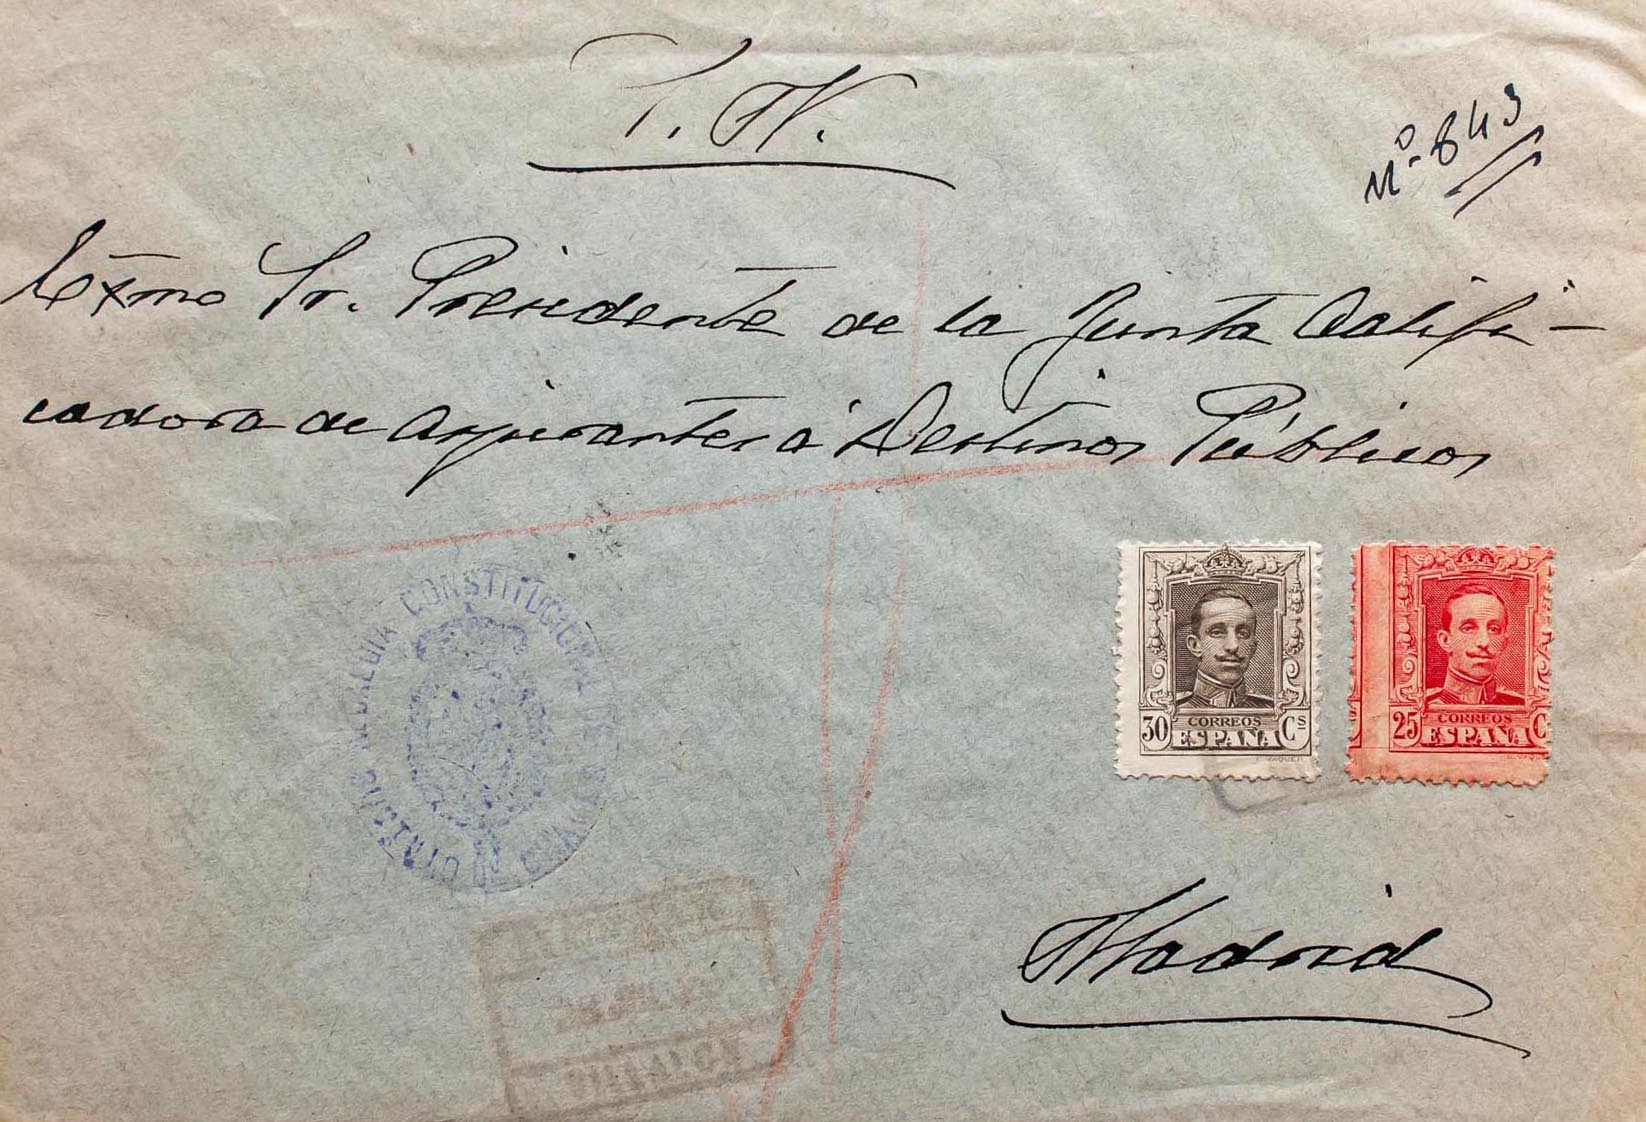 S. N.
Nº 843
Exmo Sr. Presidente de la Junta Califi-
cadora de Aspirantes á Destinos Públicos
ALCALDIA CONSTITUCIONAL DE
30 CORREOS Cs
ESPAÑA
25 CORREOS C
ESPAÑA
Madrid